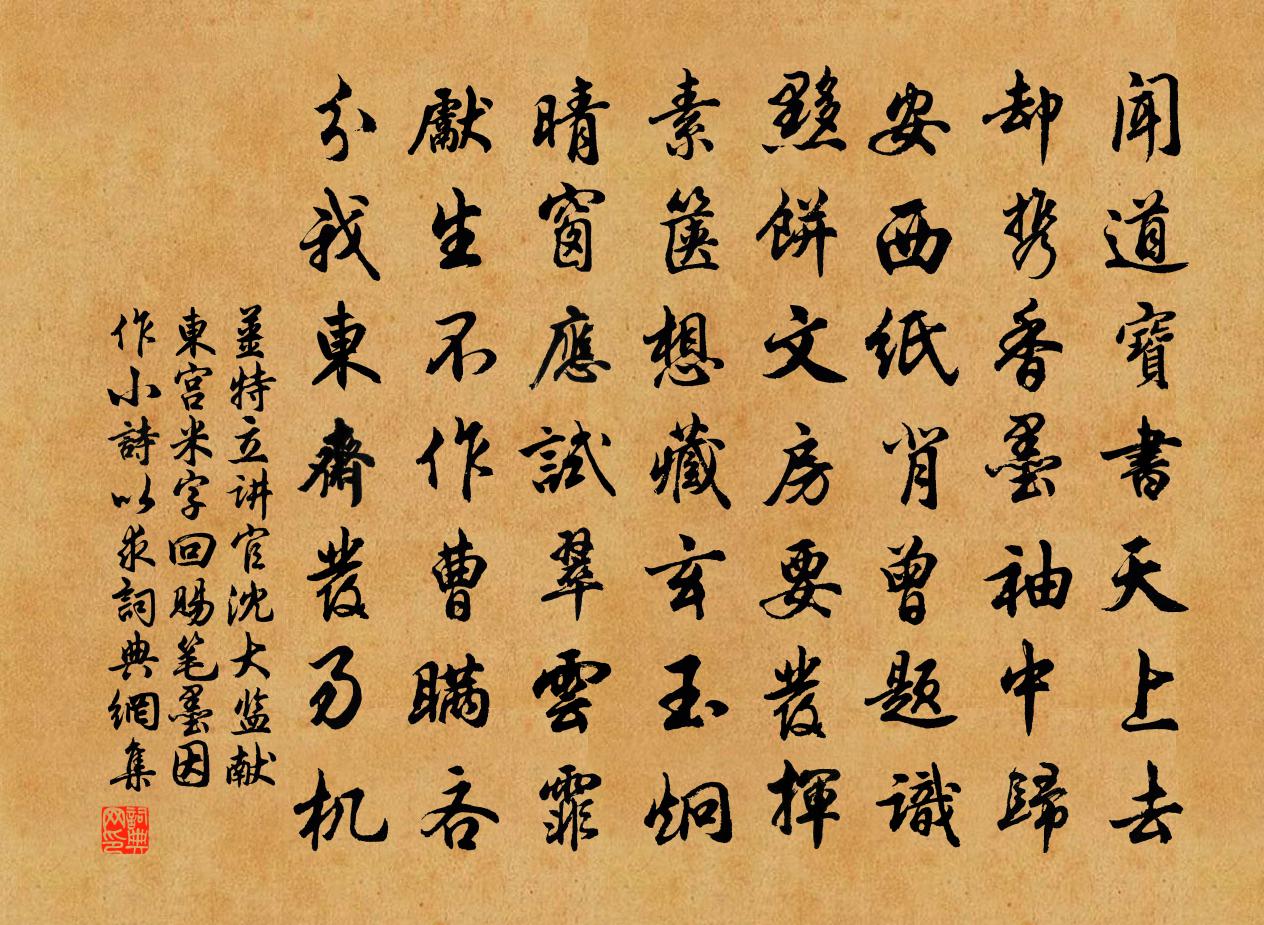 聞道寶書天上去
却携香墨袖中歸
安西紙肖曾題識
黟餅文房要發揮
素篋想藏玄玉炯
晴窗應試翠雲霏
獻生不作曹瞞吝
分我東齋發予机
薑特立讲官沈大监献
東宫米字回賜笔墨因
作小詩以求詞典網集
詞典网印